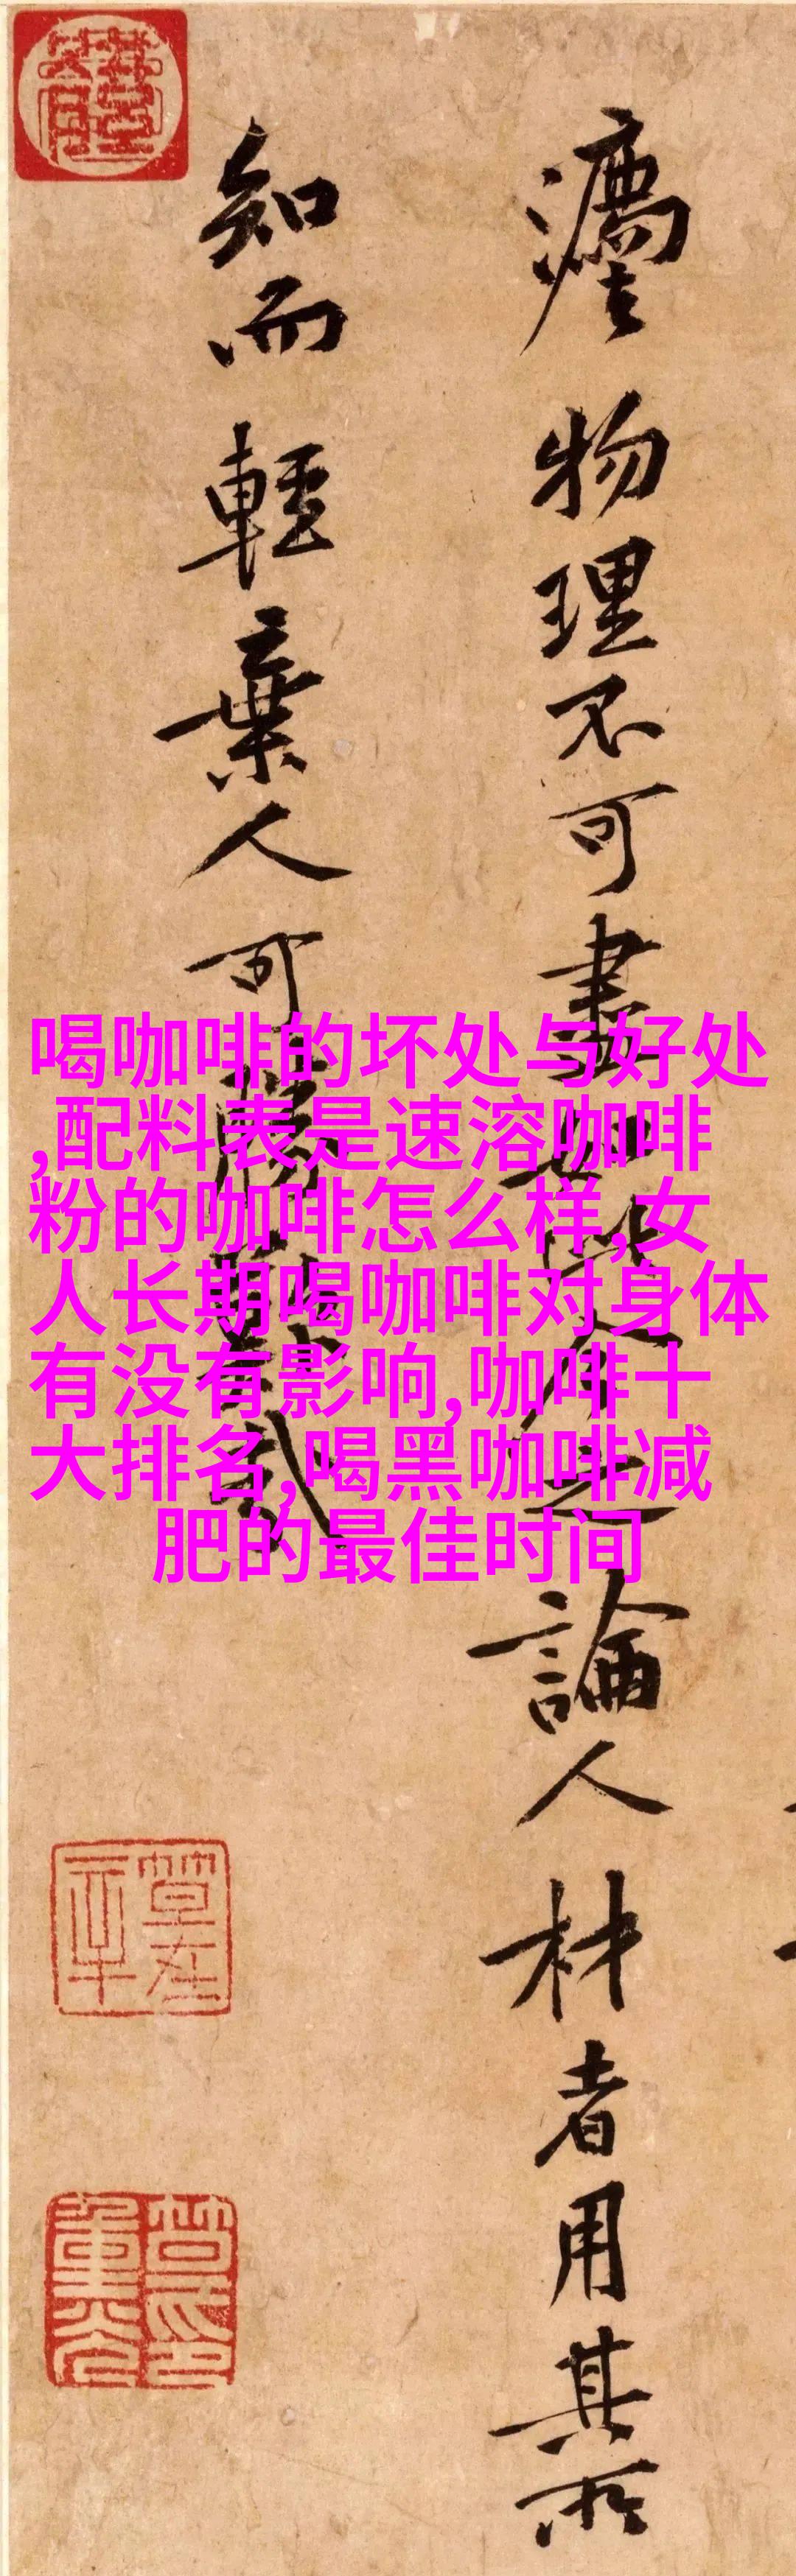 物理不可盡如此人之論人材者用其所
知而輕棄人可勝
喝咖啡的坏处与好处
,配料表是速溶咖啡
粉的咖啡怎么样,女
人长期喝咖啡对身体
有没有影响,咖啡十
大排名,喝黑咖啡减
肥的最佳时间